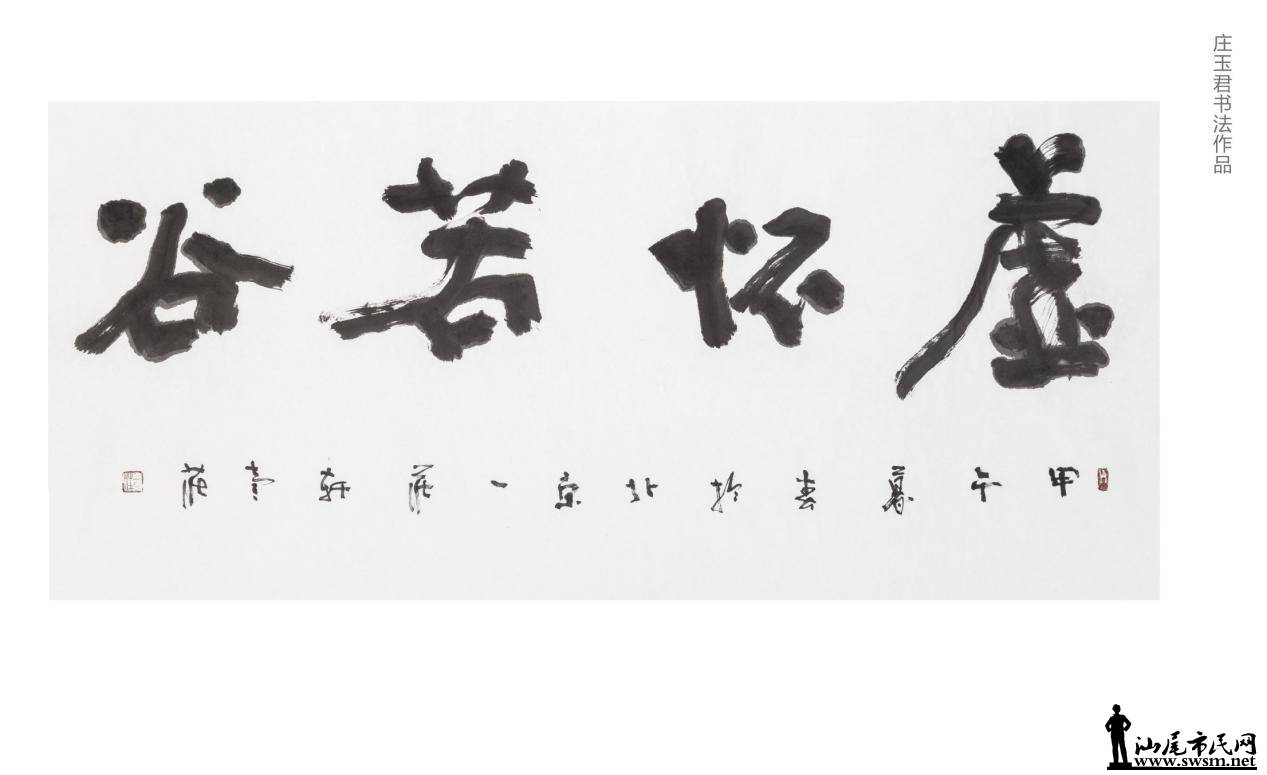 虚怀若谷
甲午暮春於北京一莊轩
庄玉君书法作品
汕尾市民网
www.swsm.net